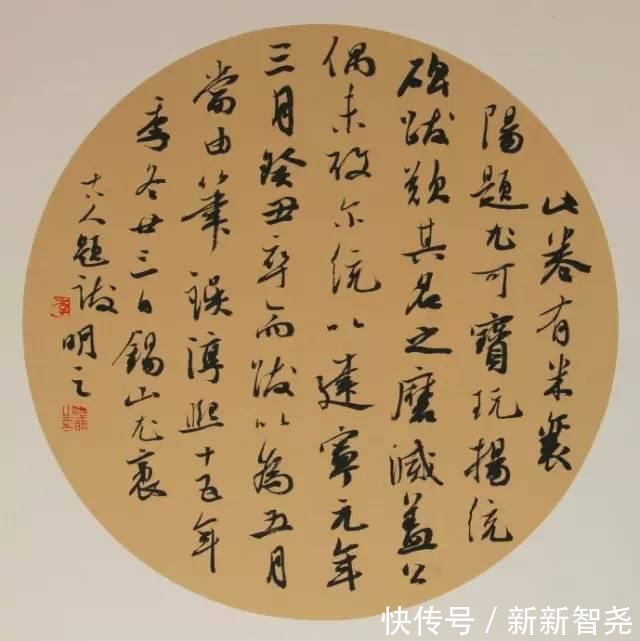 此卷有米襄
陽題尤可寶玩揚統
碑跋歎其名之磨滅蓋公
偶未攷尔統以建寧元年
三月癸丑卒而跋以為五月
當由筆誤淳熙十五年
季冬廿三日錫山尤袤
古人題跋明之
快传号 / 新新智尧